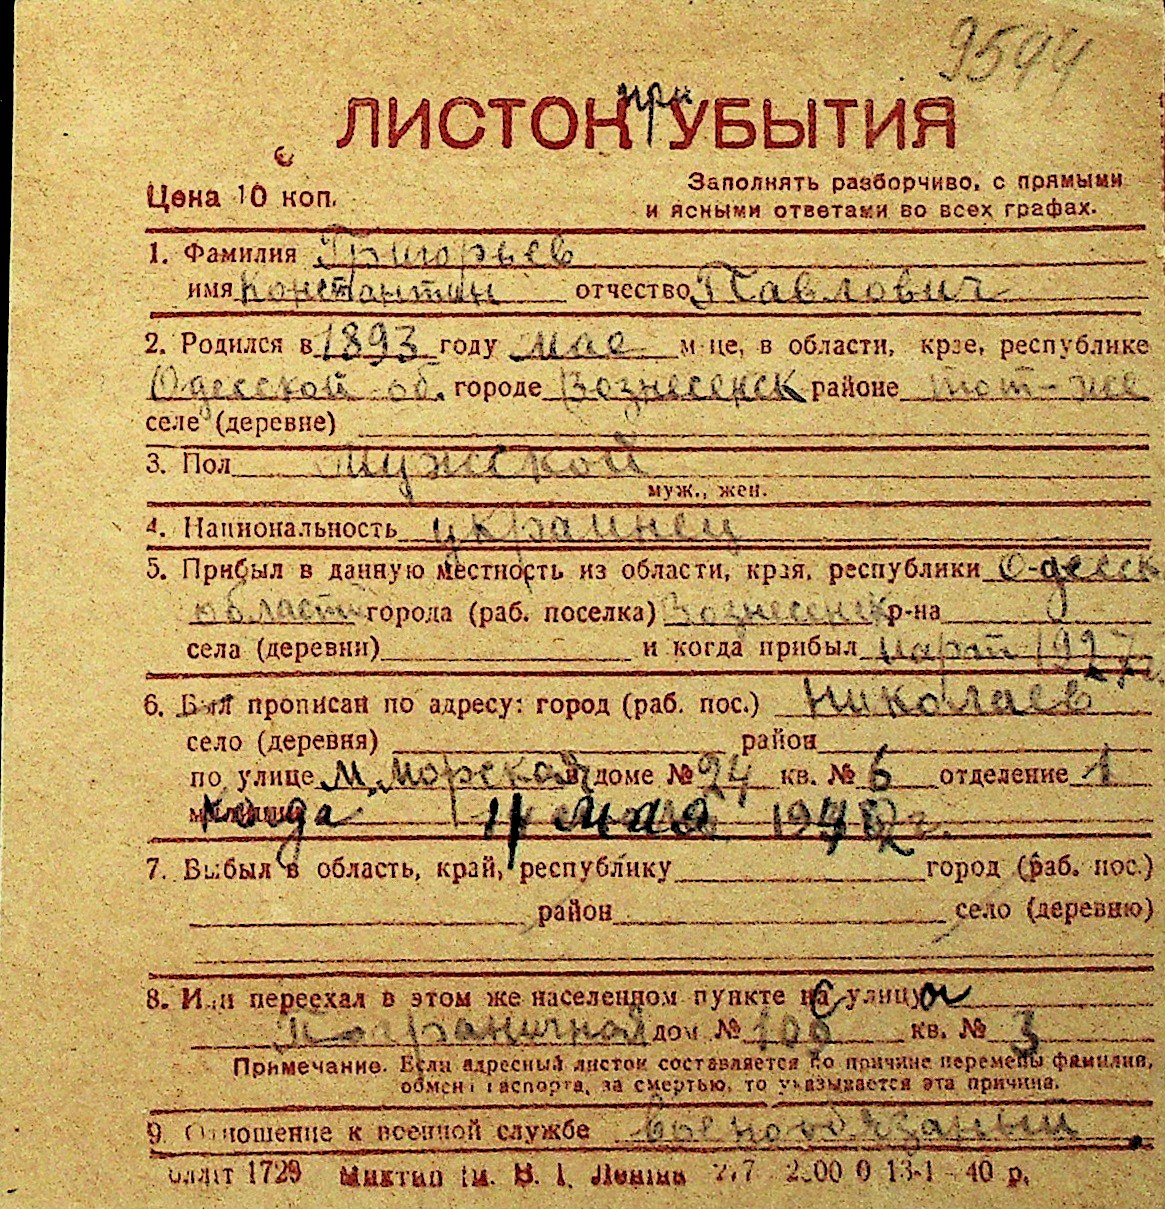 9544
при
ЛИСТОК УБЫТИЯ
Цена 10 коп.
Заполнять разборчиво, с прямыми
и ясными ответами во всех графах.
1. Фамилия Григорьев
имя Константин отчество Павлович
2. Родился в 1893 году мае м-це, в области, крае, республике
Одесской об. городе Вознесенск районе тот-же
селе (деревне)
3. Пол Мужской
муж., жен.
4. Национальность украинец
5. Прибыл в данную местность из области, края, республики Одесск
области города (раб. поселка) Вознесенск р-на
села (деревни) и когда прибыл март 1927
6. Был прописан по адресу: город (раб. пос.) Николаев
село (деревня) район
по улице М. Морская в доме № 24 кв. № 6 отделение 1
милиции когда 14 мая 194 г.
7. Выбыл в область, край, республику город (раб. пос.)
район село (деревню)
8. Или переехал в этом же населенном пункте на улицу
Пограничной дом № 100 кв. № 3
Примечание. Если адресный листок составляется по причине перемены фамилии,
обмена паспорта, за смертью, то указывается эта причина.
9. Отношение к военной службе военообязаный
1729 Миктип ім. В. І. Леніна 13-1 - 40 р.